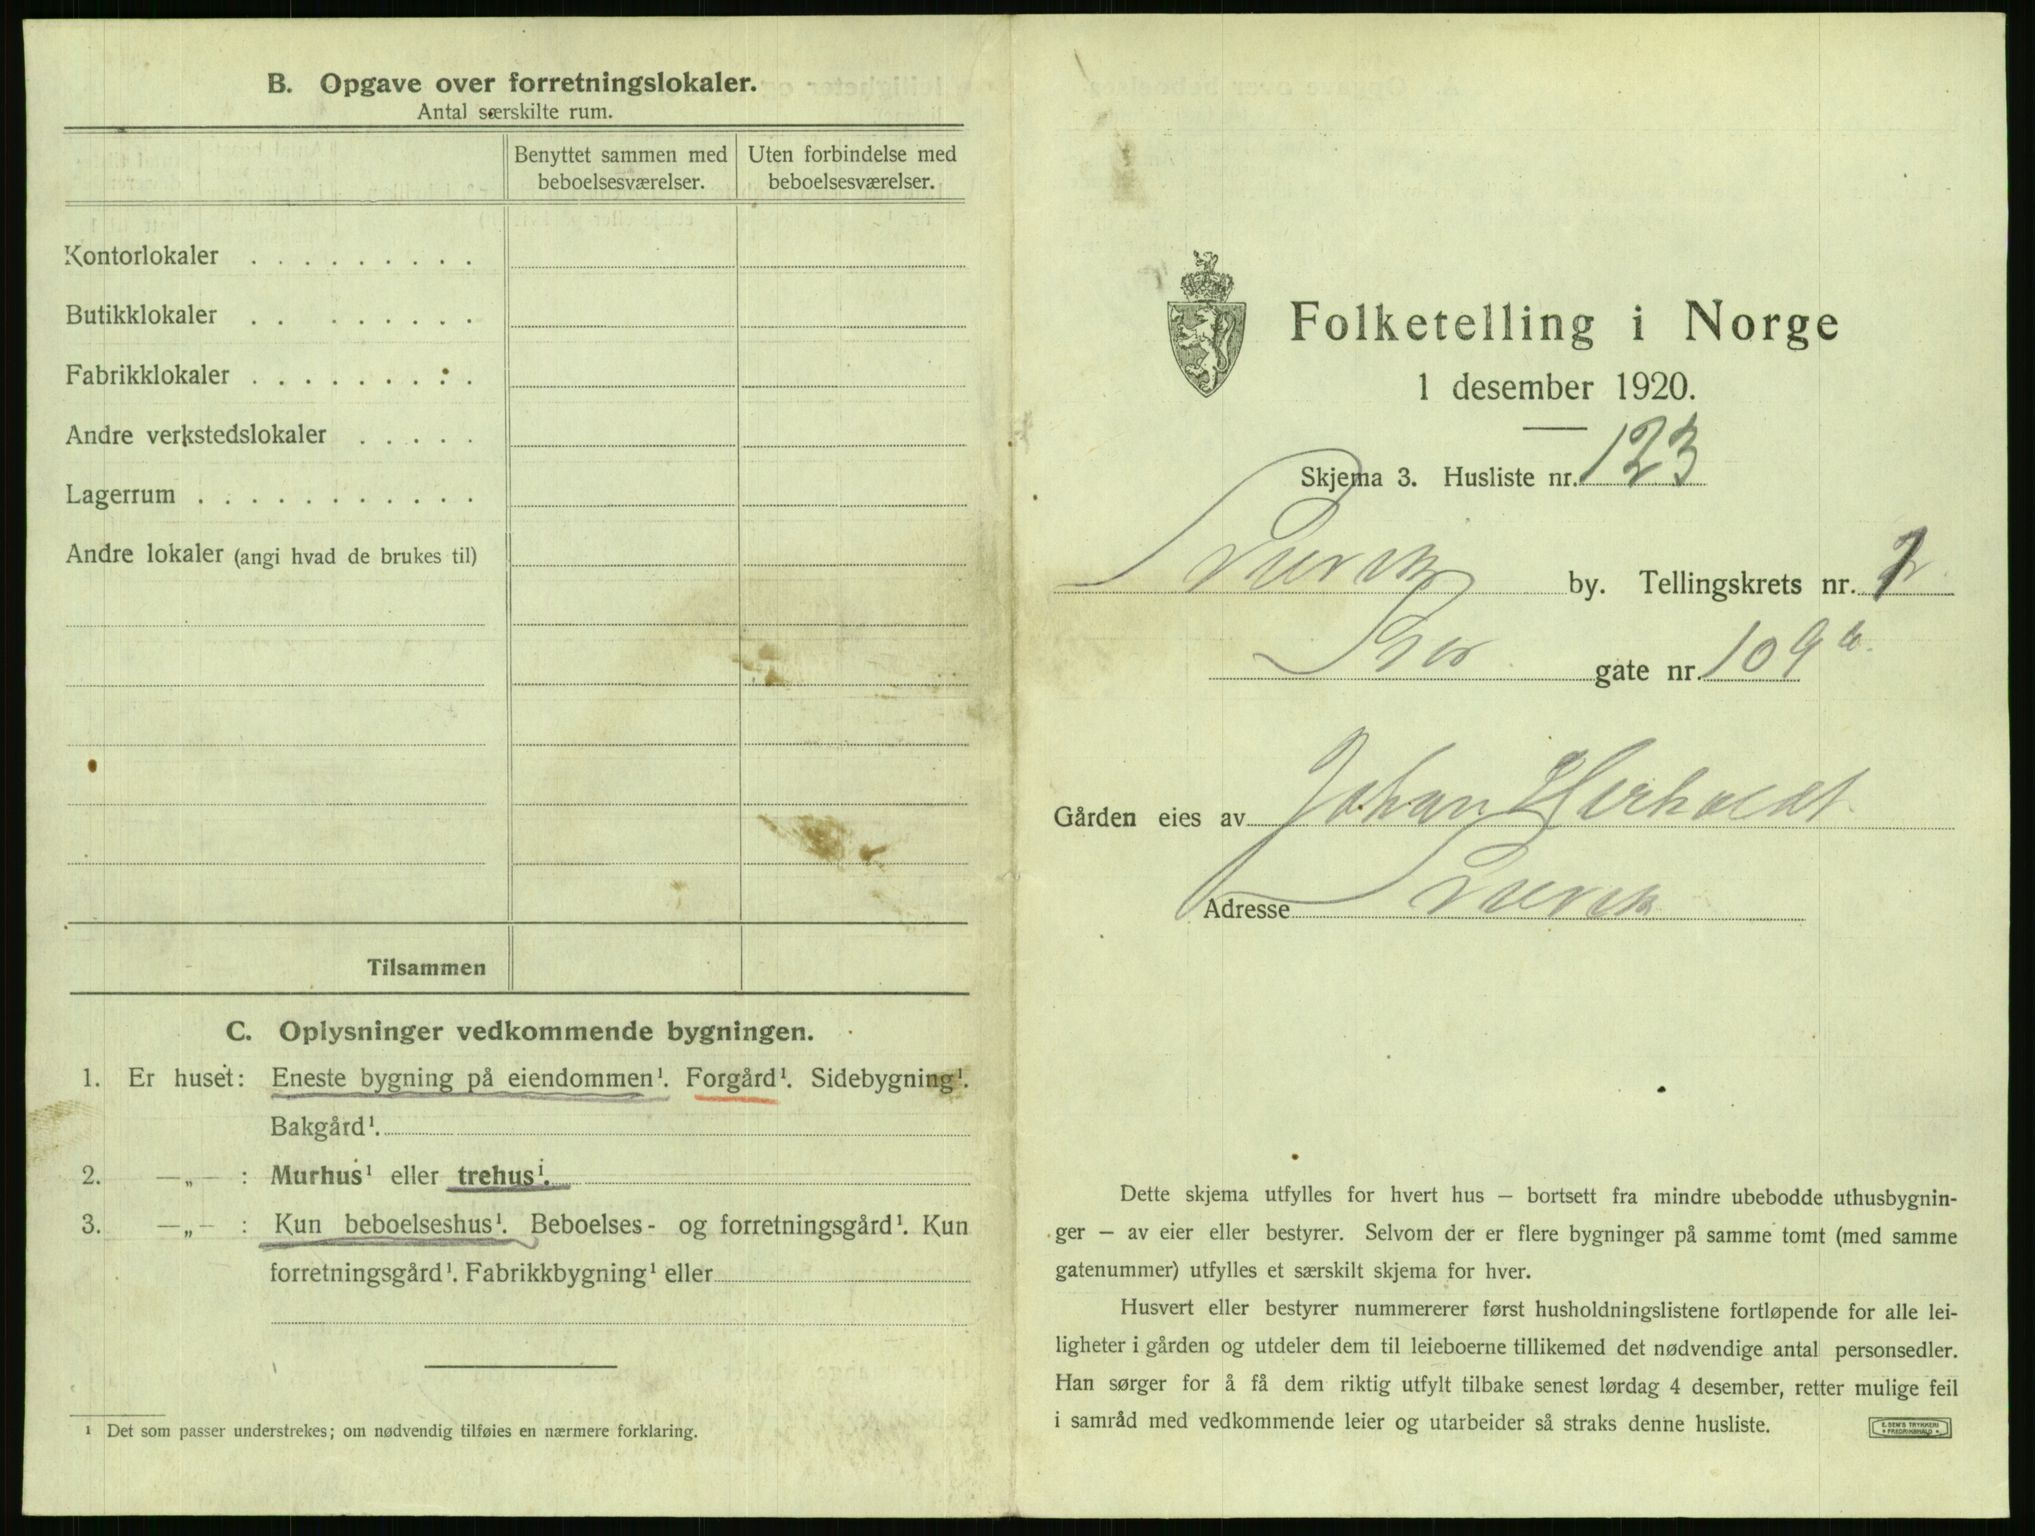 B. Opgave over forretningslokaler.
Antal særskilte rum.
Benyttet sammen med beboelsesværelser.
Uten forbindelse med beboelsesværelser.
Kontorlokaler
Butikklokaler
Fabrikklokaler
Andre verkstedslokaler
Lagerrum
Andre lokaler (angi hvad de brukes til)
Tilsammen
C. Oplysninger vedkommende bygningen.
1. Er huset: Eneste bygning på eiendommen¹. Forgård¹. Sidebygning¹.
Bakgård¹.
2. —„— : Murhus¹ eller trehus¹.
3. —„— : Kun beboelseshus¹. Beboelses- og forretningsgård¹. Kun
forretningsgård¹. Fabrikkbygning¹ eller
¹ Det som passer understrekes; om nødvendig tilføies en nærmere forklaring.
Folketelling i Norge
1 desember 1920.
Skjema 3. Husliste nr. 123
by. Tellingskrets nr. 2
gate nr. 109
Gården eies av Johan Herholdt
Adresse
Dette skjema utfylles for hvert hus — bortsett fra mindre ubebodde uthusbygnin-
ger — av eier eller bestyrer. Selvom der er flere bygninger på samme tomt (med samme
gatenummer) utfylles et særskilt skjema for hver.
Husvert eller bestyrer nummererer først husholdningslistene fortløpende for alle lei-
ligheter i gården og utdeler dem til leieboerne tillikemed det nødvendige antal personsedler.
Han sørger for å få dem riktig utfylt tilbake senest lørdag 4 desember, retter mulige feil
i samråd med vedkommende leier og utarbeider så straks denne husliste.
E. SEM'S TRYKKERI
FREDRIKSHALD